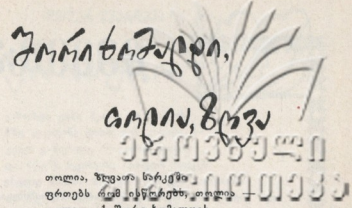 შორი ხომალდი,
თოლია, ზღვა
ეროვნული
ბიბლიოთეკა
თოლია, ზღვათა სარკეში
ფრთებს რომ ისწორებს, თოლია